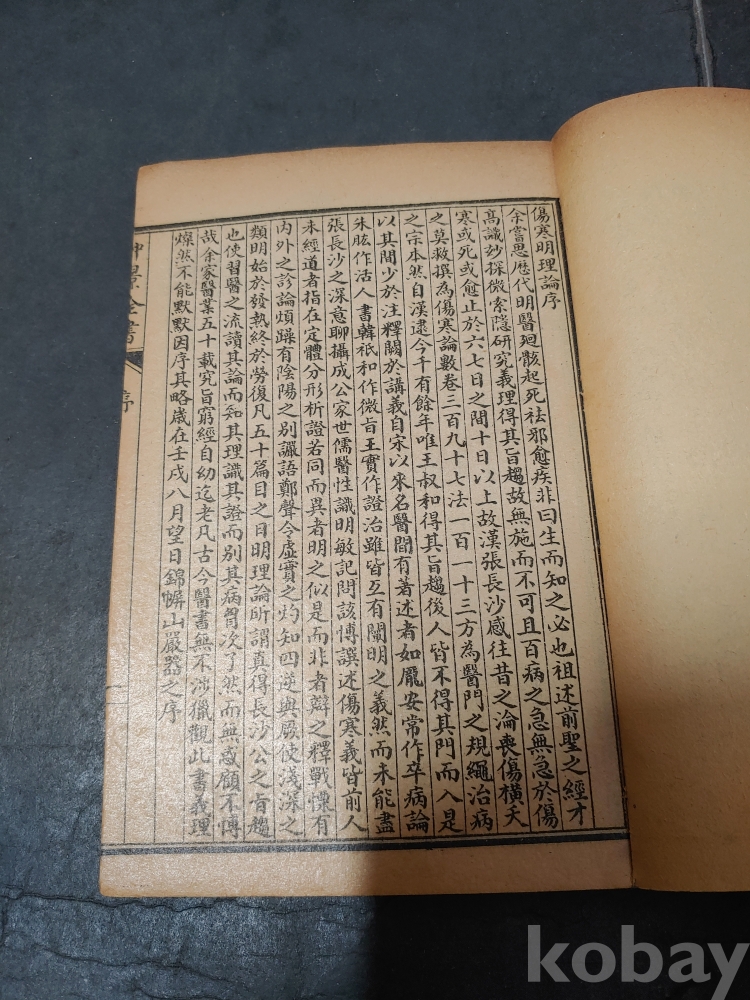 傷寒明理論序
余嘗思歷代明醫廻骸起死祛邪愈疾非曰生而知之必也祖述前聖之經才
高識妙探微索隱研究義理得其旨趣故無施而不可且百病之急無急於傷
寒或死或愈止於六七日之間十日以上故漢張長沙感往昔之淪喪傷橫夭
之莫救撰為傷寒論數卷三百九十七法一百一十三方為醫門之規繩治病
之宗本然自漢逮今千有餘年唯王叔和得其旨趣後人皆不得其門而入是
以其間少於注釋闕於講義自宋以來名醫間有著述者如龐安常作卒病論
朱肱作活人書韓祇和作微旨王實作證治雖皆互有闡明之義然而未能盡
張長沙之深意聊攝成公家世儒醫性識明敏記問該博譔述傷寒義皆前人
未經道者指在定體分形析證若同而異者明之似是而非者辯之釋戰慄有
內外之診論煩躁有陰陽之別讝語鄭聲令虛實之灼知四逆與厥使淺深之
類明始於發熱終於勞復凡五十篇目之曰明理論所謂真得長沙公之旨趣
也使習醫之流讀其論而知其理識其證而別其病胷次了然而無惑顧不博
哉余家醫業五十載究旨窮經自幼迄老凡古今醫書無不涉獵觀此書義理
燦然不能默默因序其略歲在壬戌八月望日錦幈山嚴器之序
仲景全書
序
一
kobay